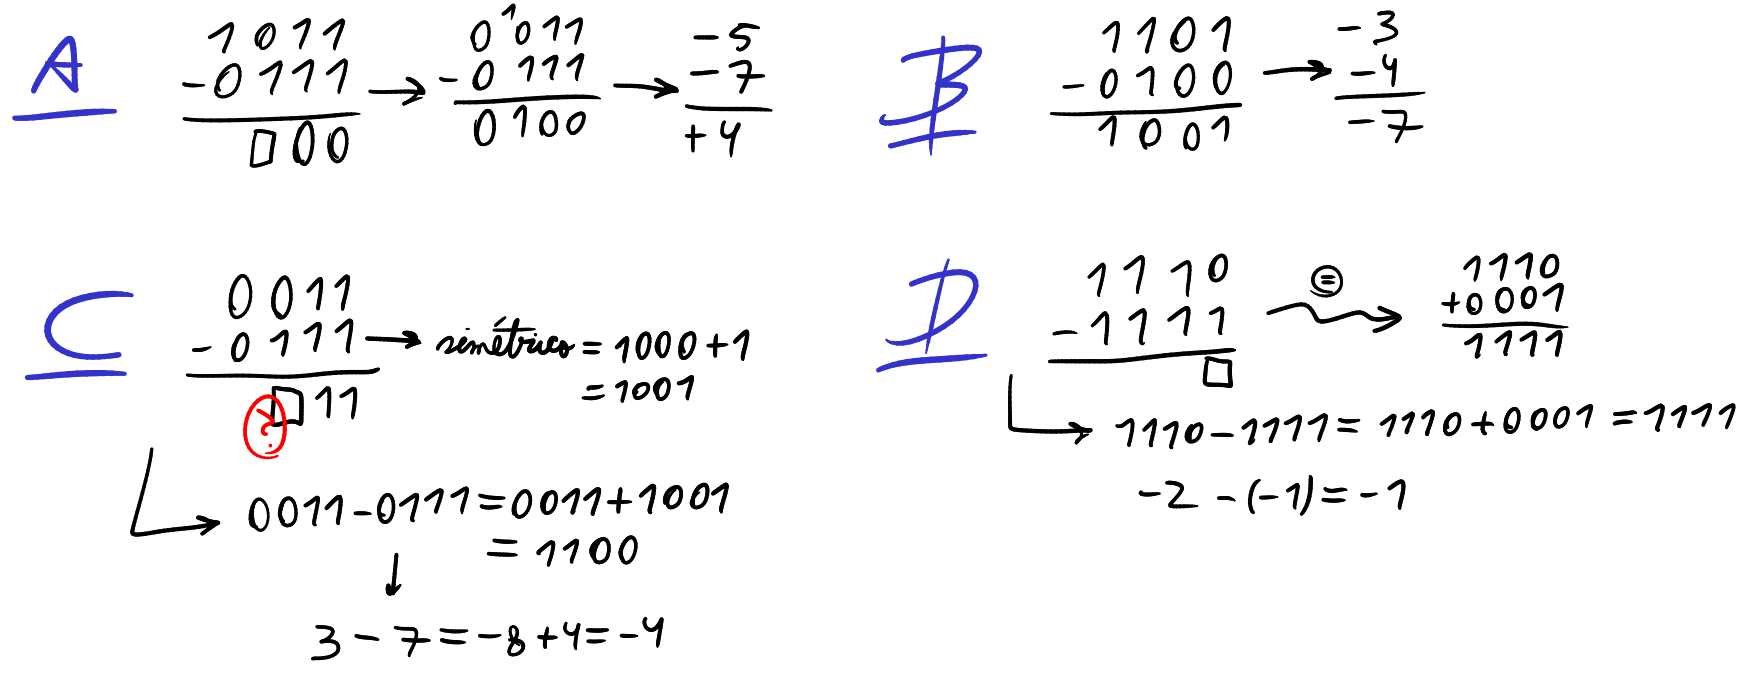 A
1011
-0111 →
□00
0 ¹011
-0 111 →
0100
-5
-7
+4
B
1101
-0100 →
1001
-3
-4
-7
C
0011
-0111 → simétrico = 1000+1
= 1001
□11
?
0011-0111 = 0011+1001
= 1100
3 - 7 = -8 + 4 = -4
D
1110
-1111
□
=
1110
+0001
1111
1110-1111 = 1110+0001 = 1111
-2 -(-1) = -1